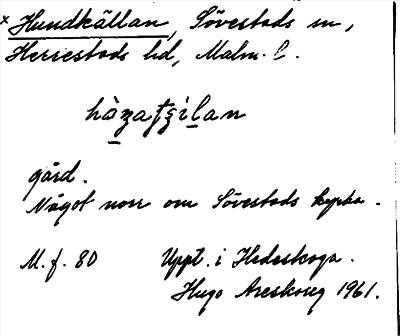 x Hundkällan, Sövestads sn,
Herrestads hd, Malm. l.
gård.
Något norr om Sövestads kyrka.
M.f. 80 Uppt. i Hedeskoga.
Hugo Areskoug 1961.